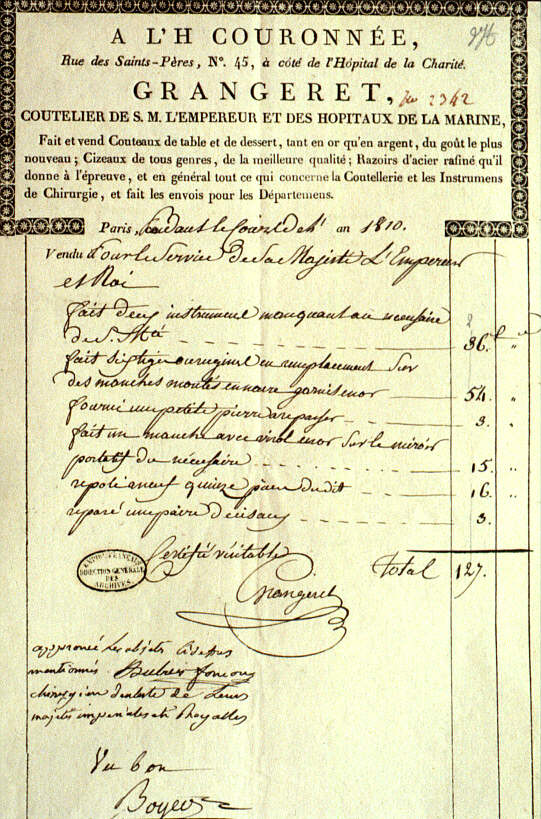 A L'H COURONNÉE,
Rue des Saints-Pères, N°. 45, à côté de l'Hôpital de la Charité.
GRANGERET, 2342
COUTELIER DE S. M. L'EMPEREUR ET DES HOPITAUX DE LA MARINE,
Fait et vend Couteaux de table et de dessert, tant en or qu'en argent, du goût le plus
nouveau; Cizeaux de tous genres, de la meilleure qualité; Razoirs d'acier rafiné qu'il
donne à l'épreuve, et en général tout ce qui concerne la Coutellerie et les Instrumens
de Chirurgie, et fait les envois pour les Départemens.
Paris, Pendant le Courant de l' an 1810.
Vendu Pour le Service de Sa Majesté L'Empereur
et Roi
fait deux instrument manquant au nécessaire
de S. Mté 36. f c
fait Sept tiges en remplacement Sur
des manches montés en nacre garnis en or 54. "
fourni une petite pierre a repasser 3. "
fait un manche avec virol en or Sur le miroir
portatif du nécessaire 15. "
repoli a neuf quinze pièces dudit 16. "
réparé une paire d'ciseaux 3.
Certifié véritable Total 127.
Grangeret
EMPIRE FRANÇAIS
DIRECTION GENERALE
DES
ARCHIVES.
approuvé les objets ci dessus
mentionnés. Dubois foucou
chirurgien dentiste de Leurs
majestés imperiales et Royalles
Vu bon
Boyer